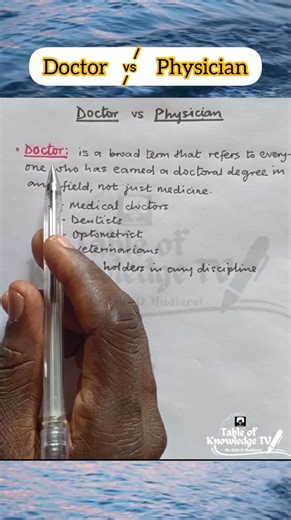 Doctor vs Physician
Doctor vs Physician
• Doctor: is a broad term that refers to every-
one who has earned a doctoral degree in
field, not just medicine.
- Medical doctors
- Dentists
- Optometrist
veterinarians
holders in any discipline
Table of
Knowledge TV